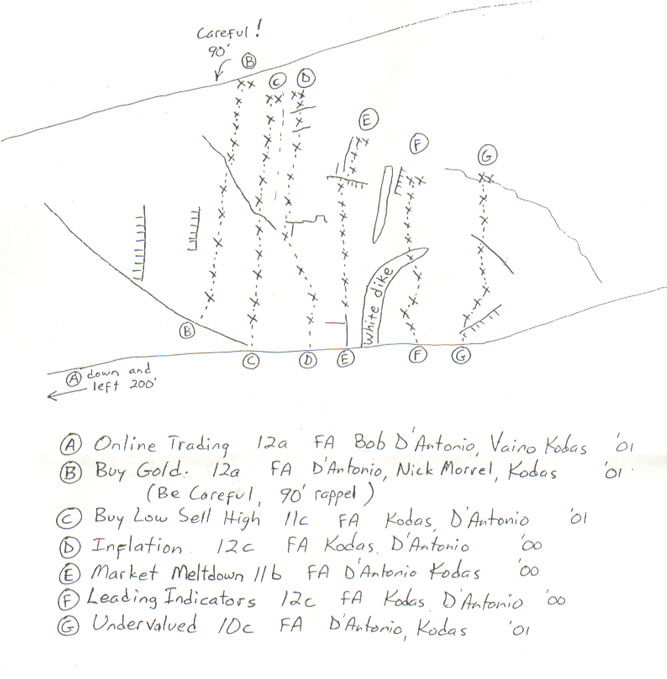 Careful!
90'
B
C
D
E
F
G
white dike
B
C
D
E
F
G
A down and
left 200'
A Online Trading 12a FA Bob D'Antonio, Vaino Kodas '01
B Buy Gold. 12a FA D'Antonio, Nick Morvel, Kodas '01
(Be Careful, 90' rappel)
C Buy Low Sell High 11c FA Kodas, D'Antonio '01
D Inflation 12c FA Kodas, D'Antonio '00
E Market Meltdown 11b FA D'Antonio Kodas '00
F Leading Indicators 12c FA Kodas, D'Antonio '00
G Undervalued 10c FA D'Antonio, Kodas '01